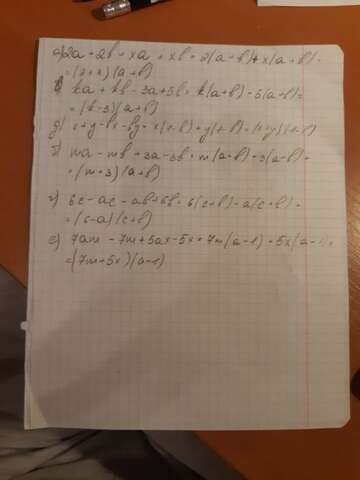 а) 2a + 2b + xa + xb = 2(a+b) + x(a+b) =
= (2+x)(a+b)
в) ka + kb - 3a + 5b = k(a+b) - 5(a+b) =
= (k-3)(a+b)
д) x + y - bx - by = x(1-b) + y(1-b) = (x+y)(1-b)
б) ma - mb + 3a - 3b = m(a-b) + 3(a-b) =
= (m+3)(a+b)
г) 6c - ac - ab + 6b = 6(c+b) - a(c+b) =
= (6-a)(c+b)
е) 7am - 7m + 5ax - 5x = 7m(a-1) + 5x(a-1) =
= (7m+5x)(a-1)